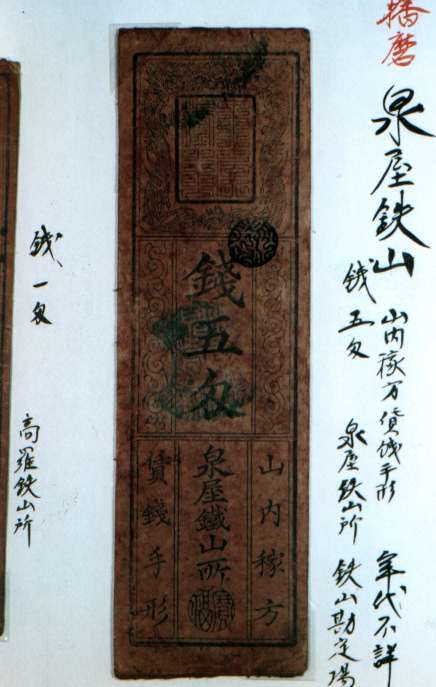 播磨
泉屋鉄山
山内稼方賃銭手形 年代不詳
銭五匁 泉屋鉄山所 鉄山勘定場
錢五匁
山内稼方
泉屋鐵山所
賃錢手形
銭一匁
高羅鉄山所